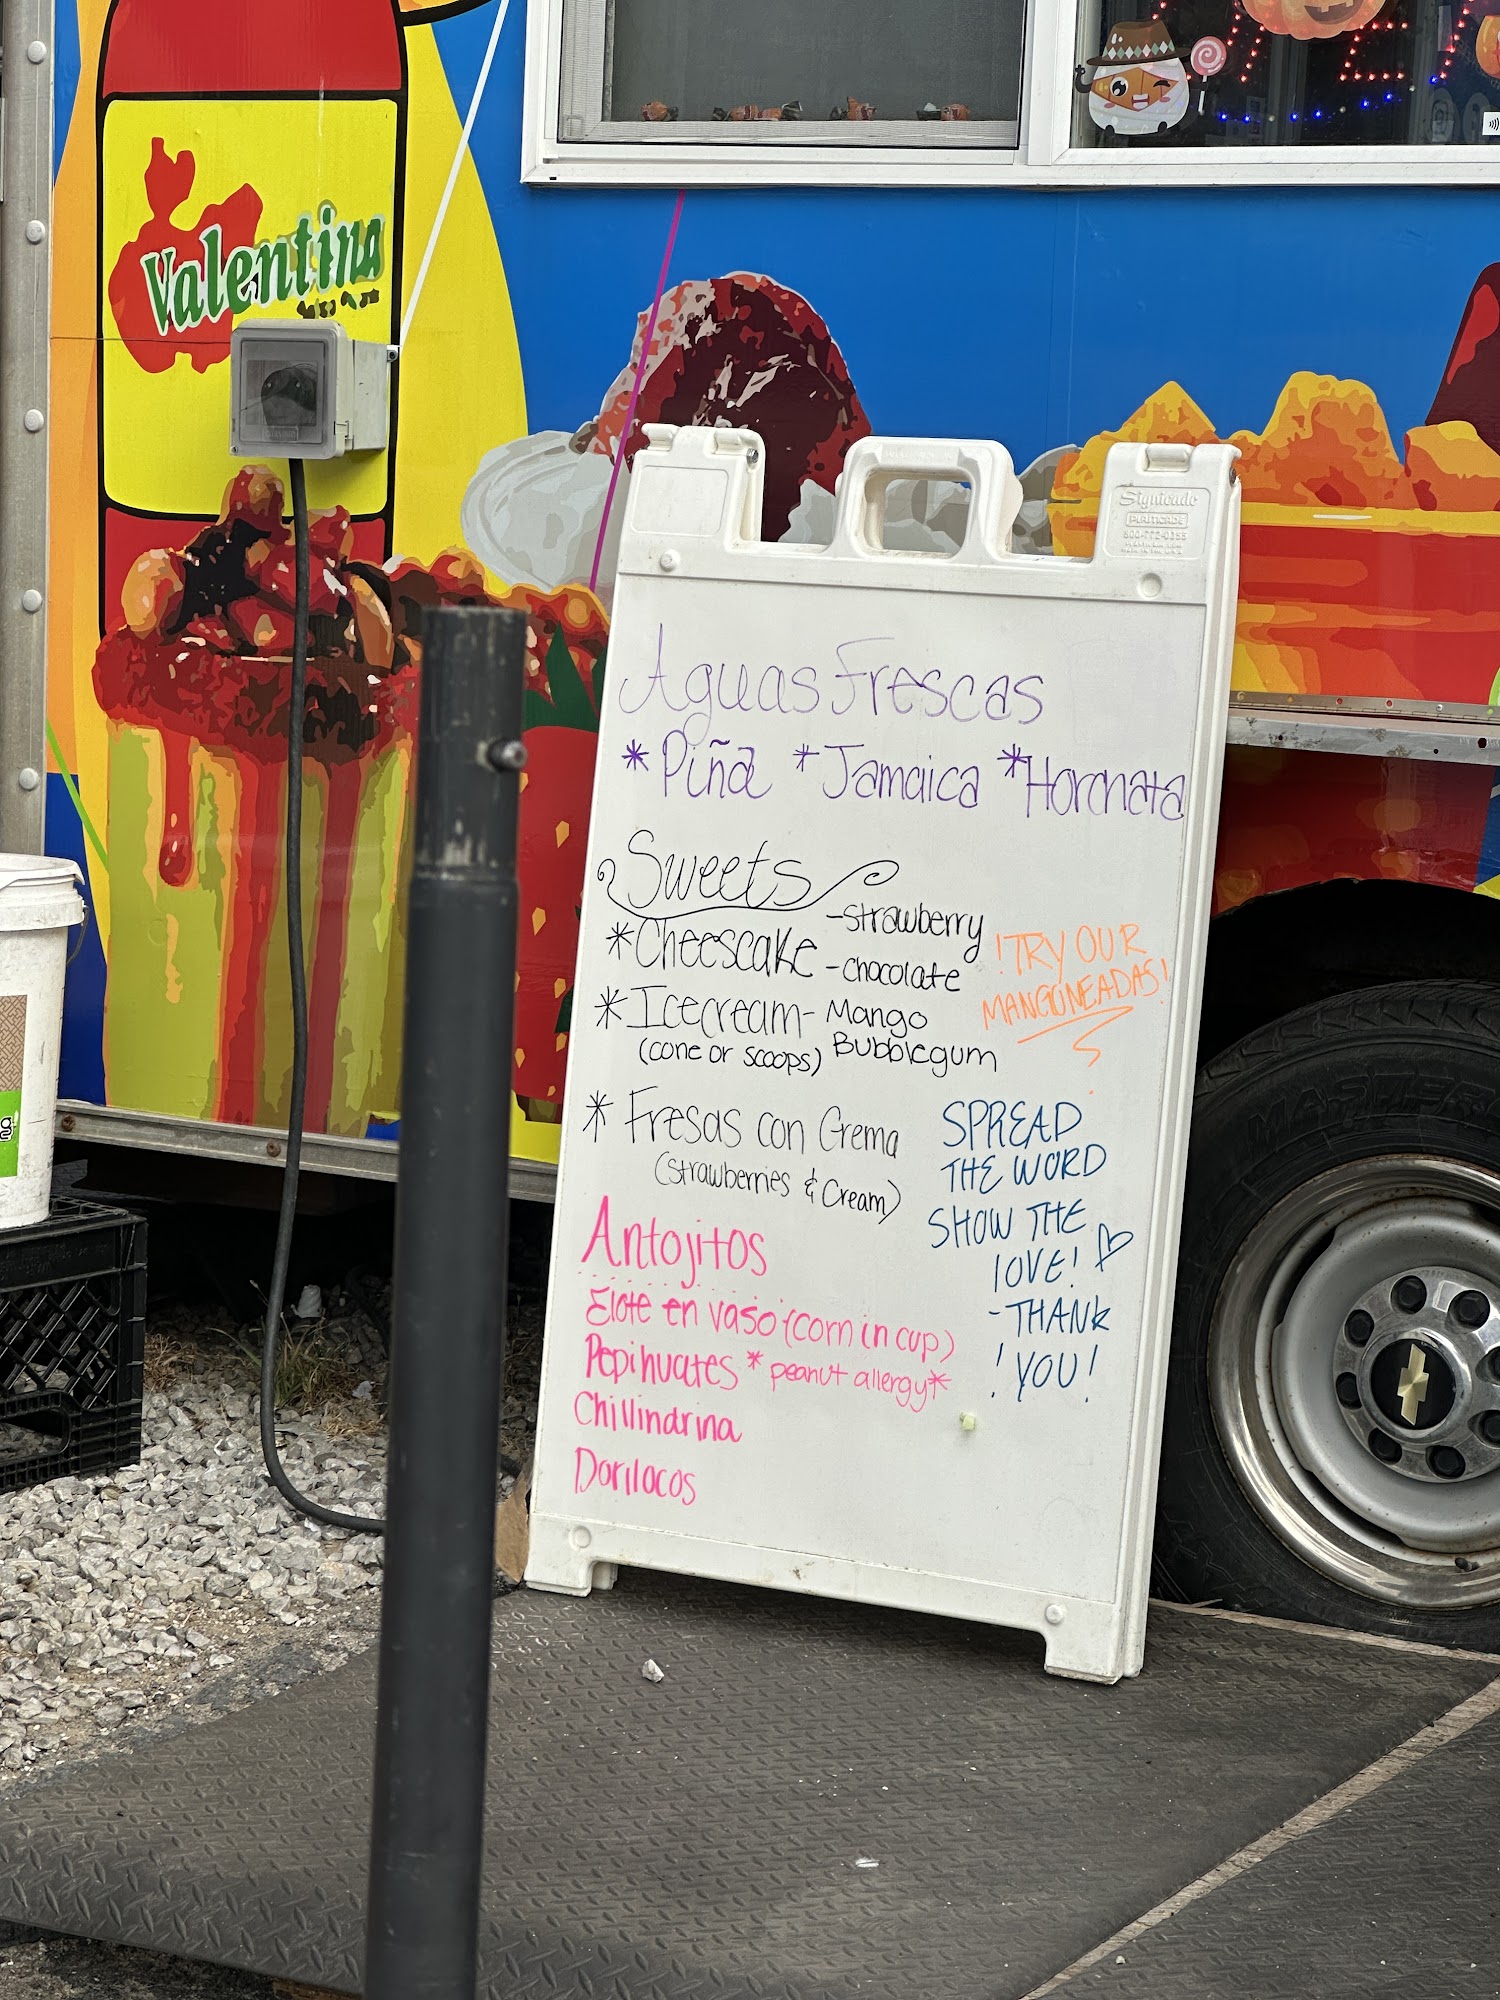 Valentina
Signicade
PLASTICADE
800-772-0355
Aguas Frescas
*Piña *Jamaica *Horchata
Sweets
*Cheescake -strawberry
-chocolate
!TRY OUR
MANGONEADAS!
*Icecream- Mango
(cone or scoops) Bubblegum
* Fresas con Crema
(strawberries & Cream)
SPREAD
THE WORD
SHOW THE
LOVE!
-THANK
!YOU!
Antojitos
Elote en vaso (corn in cup)
Pepihuates *peanut allergy*
Chillindrina
Dorilocos